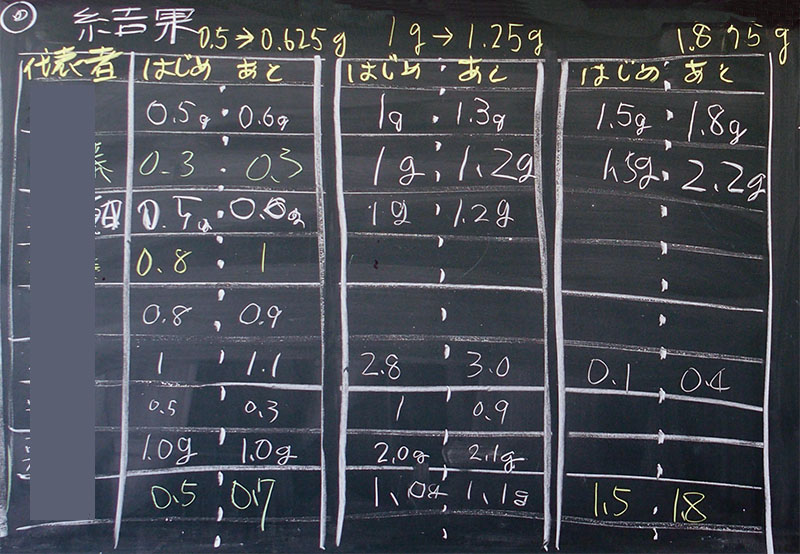 ① 結果 0.5→0.625g 1g→1.25g 1.875g
代表者 はじめ あと はじめ あと はじめ あと
0.5g 0.6g 1g 1.3g 1.5g 1.8g
0.3 0.3 1g 1.2g 1.5g 2.2g
0.5g 0.6g 1g 1.2g
0.8 1
0.8 0.9
1 1.1 2.8 3.0 0.1 0.4
0.5 0.3 1 0.9
1.0g 1.0g 2.0g 2.1g
0.5 0.7 1.0g 1.1g 1.5 1.8